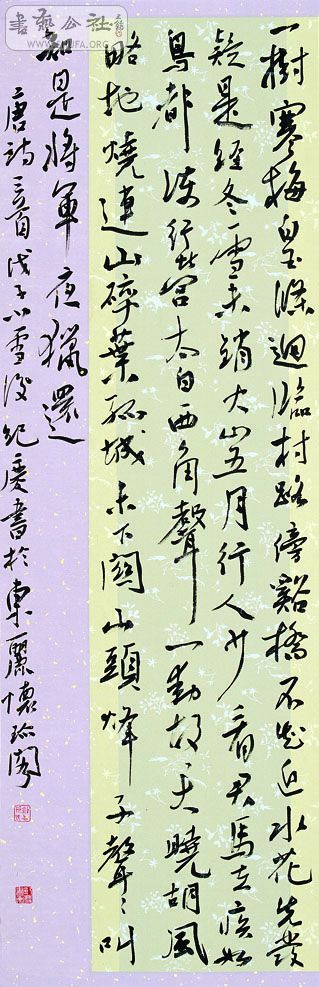 書藝公社
一樹寒梅白玉條迥臨村路傍谿橋不知近水花先發
疑是經冬雪未銷火山五月行人少看君馬去疾如
鳥都護行營太白西角聲一動胡天曉胡風
略地燒連山碎葉孤城未下關山頭烽子聲〻叫
知是將軍夜獵還
唐詩三首戊子小雪後紀慶書於東麗懷瑜閣